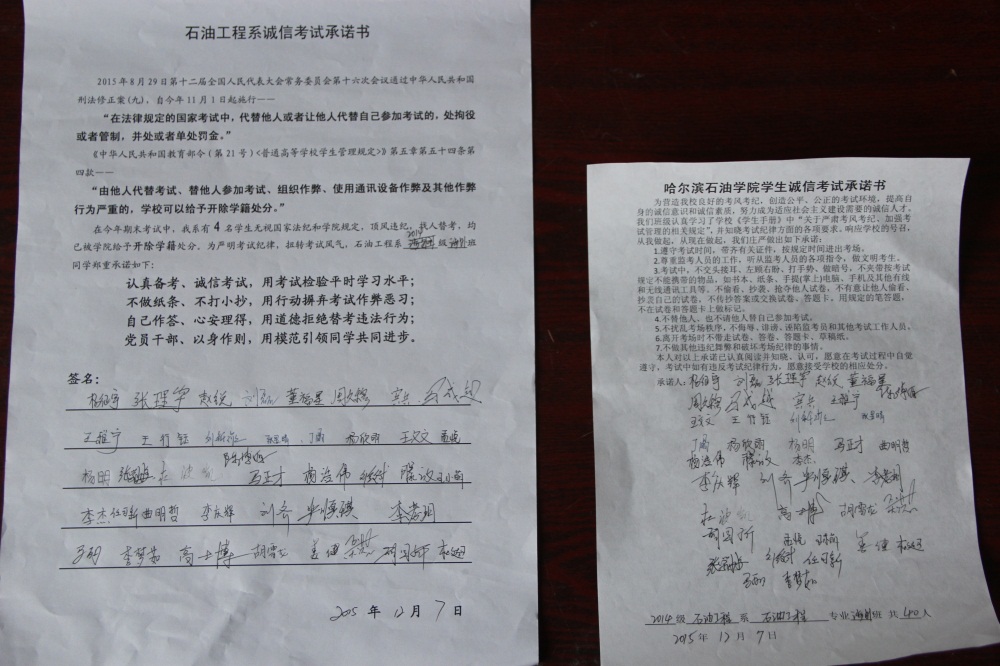 石油工程系诚信考试承诺书
2015年8月29日第十二届全国人民代表大会常务委员会第十六次会议通过中华人民共和国
刑法修正案(九)，自今年11月1日起施行——
“在法律规定的国家考试中，代替他人或者让他人代替自己参加考试的，处拘役
或者管制，并处或者单处罚金。”
《中华人民共和国教育部令（第21号）<普通高等学校学生管理规定>》第五章第五十四条第
四款——
“由他人代替考试、替他人参加考试、组织作弊、使用通讯设备作弊及其他作弊
行为严重的，学校可以给予开除学籍处分。”
在今年期末考试中，我系有4名学生无视国家法纪和学院规定，顶风违纪，找人替考，均
已被学院给予开除学籍处分。为严明考试纪律，扭转考试风气，石油工程系 2014 级 班
同学郑重承诺如下：
认真备考、诚信考试，用考试检验平时学习水平；
不做纸条、不打小抄，用行动摒弃考试作弊恶习；
自己作答、心安理得，用道德拒绝替考违法行为；
党员干部、以身作则，用模范引领同学共同进步。
签名：
张理宇 赵锐 刘磊 董福星
王维宁 丁勇 杨欣雨 王文文
杨明 马正才 杨治伟
李杰 任可新 曲明哲 李庆辉 刘齐
李梦茹 高士博 胡雪龙 姜健
2015年12月7日
哈尔滨石油学院学生诚信考试承诺书
为营造我校良好的考风考纪，创造公平、公正的考试环境，提高自
身的诚信意识和诚信素质，努力成为适应社会主义建设需要的诚信人才，
我们班级认真学习了学校《学生手册》中“关于严肃考风考纪、加强考
试管理的相关规定”，并知晓考试纪律方面的各项要求，响应学校的号召，
从我做起，从现在做起，我们庄严做出如下承诺：
1.遵守考试时间。带齐有关证件，按规定时间进出考场。
2.尊重监考人员的工作，听从监考人员的各项指令，做文明考生。
3.考试中，不交头接耳、左顾右盼、打手势、做暗号，不夹带按考试
规定不能携带的物品，如书本、纸条、手提(掌上)电脑、手机及其他有线
和无线通讯工具等。不偷看、抄袭、抢夺他人试卷，不有意让他人偷看、
抄袭自己的试卷，不传抄答案或交换试卷、答题卡。用规定的笔答题，
不在试卷和答题卡上做标记。
4.不替他人，也不请他人替自己参加考试。
5.不扰乱考场秩序，不侮辱、诽谤、诬陷监考员和其他考试工作人员。
6.离开考场时不带走试卷、答卷、答题卡、草稿纸。
7.不做其他违纪舞弊和破坏考场纪律的事情。
本人对以上承诺已认真阅读并知晓、认可，愿意在考试过程中自觉
遵守，考试中如有违反考试纪律行为，愿意接受学校的相应处分。
承诺人： 刘磊 张理宇 赵锐 董福星
王维宁
丁勇 杨欣雨 杨明 马正才 曲明哲
杨治伟 李杰
李庆辉 刘齐
高士博 胡雪龙
姜健
任可新
李梦茹
2014级 石油工程 系 石油工程 专业 班 共 40 人
2015年12月7日